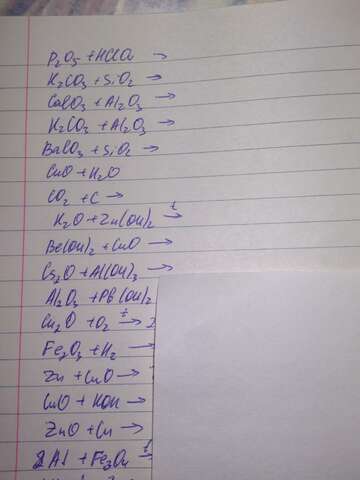 P₂O₅ + HClO₄ →
K₂CO₃ + SiO₂ →
CaCO₃ + Al₂O₃ →
K₂CO₃ + Al₂O₃ →
BaCO₃ + SiO₂ →
CuO + H₂O
CO₂ + C →
K₂O + Zn(OH)₂ t→
Be(OH)₂ + CuO →
Cs₂O + Al(OH)₃ →
Al₂O₃ + Pb(OH)₂
Cu₂O + O₂ t→ 2
Fe₂O₃ + H₂ →
Zn + CuO →
CuO + KOH →
ZnO + Cu →
2Al + Fe₃O₄ t→